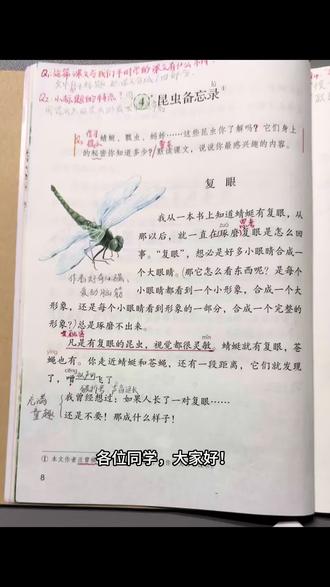 Q1:这篇课文与我们平时学的课文有什么不同?
Q2:小标题的特点?
4 昆虫备忘录①
lù
蜻蜓、瓢虫、蚂蚱……这些昆虫你了解吗?它们身上
的秘密你知道多少?默读课文,说说你最感兴趣的内容。
复眼
我从一本书上知道蜻蜓有复眼,从
思考
zuó
那以后,就一直在琢磨复眼是怎么回
事。“复眼”,想必是好多小眼睛合成一
个大眼睛。那它怎么看东西呢?是每个
小眼睛都看到一个小形象,合成一个大
形象,还是每个小眼睛看到形象的一部分,合成一个完整的
形象?总是琢磨不出来。
mǐn
凡是有复眼的昆虫,视觉都很灵敏。蜻蜓有复眼,苍
yíng
蝇也有。你走近蜻蜓和苍蝇,还有一段距离,它们就发现
cēng
了,噌——飞了。
充满
童趣
我曾经想过:如果人长了一对复眼……
还是不要!那成什么样子!
① 本文作者汪曾祺
各位同学,大家好!
8